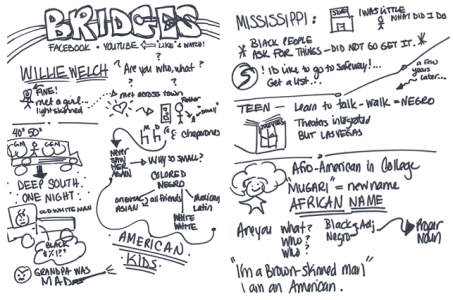 BRIDGES
FACEBOOK • YOUTUBE LIKE & WATCH!
WILLIE WELCH
? ? ?
"Are you who, what?
FINE!
met a gurl
light skinned
met across town
FATHER
"small"
M D
& chaperones
NEVER
SAW
HER
AGAIN
WHY SO SMALL?
COLORED
NEGRO
one race
ASIAN
all friends
Mexican
Latin
WHITE
WHITE
AMERICAN
KIDS
40° 50°
DEEP SOUTH
ONE NIGHT:
OLD WHITE MAN
BLACK
GRANDPA WAS
MAD
MISSISSIPPI:
STORE
I WAS LITTLE
WHAT DID I DO
* BLACK PEOPLE
ASK FOR THINGS - DID NOT GO GET IT. *
S
! I'D like to go to Safeway!...
Get a list...
a few
years
later...
TEEN — Learn to talk - walk = NEGRO
Theaters integrated
BUT LAS VEGAS
Afro-American in College
"MUGARI" = new name
AFRICAN NAME
Are you what?
WHO?
WILD?
Black = Adj
Negro
Proper
Noun
"I'm a Brown-skinned man"
I am an American.